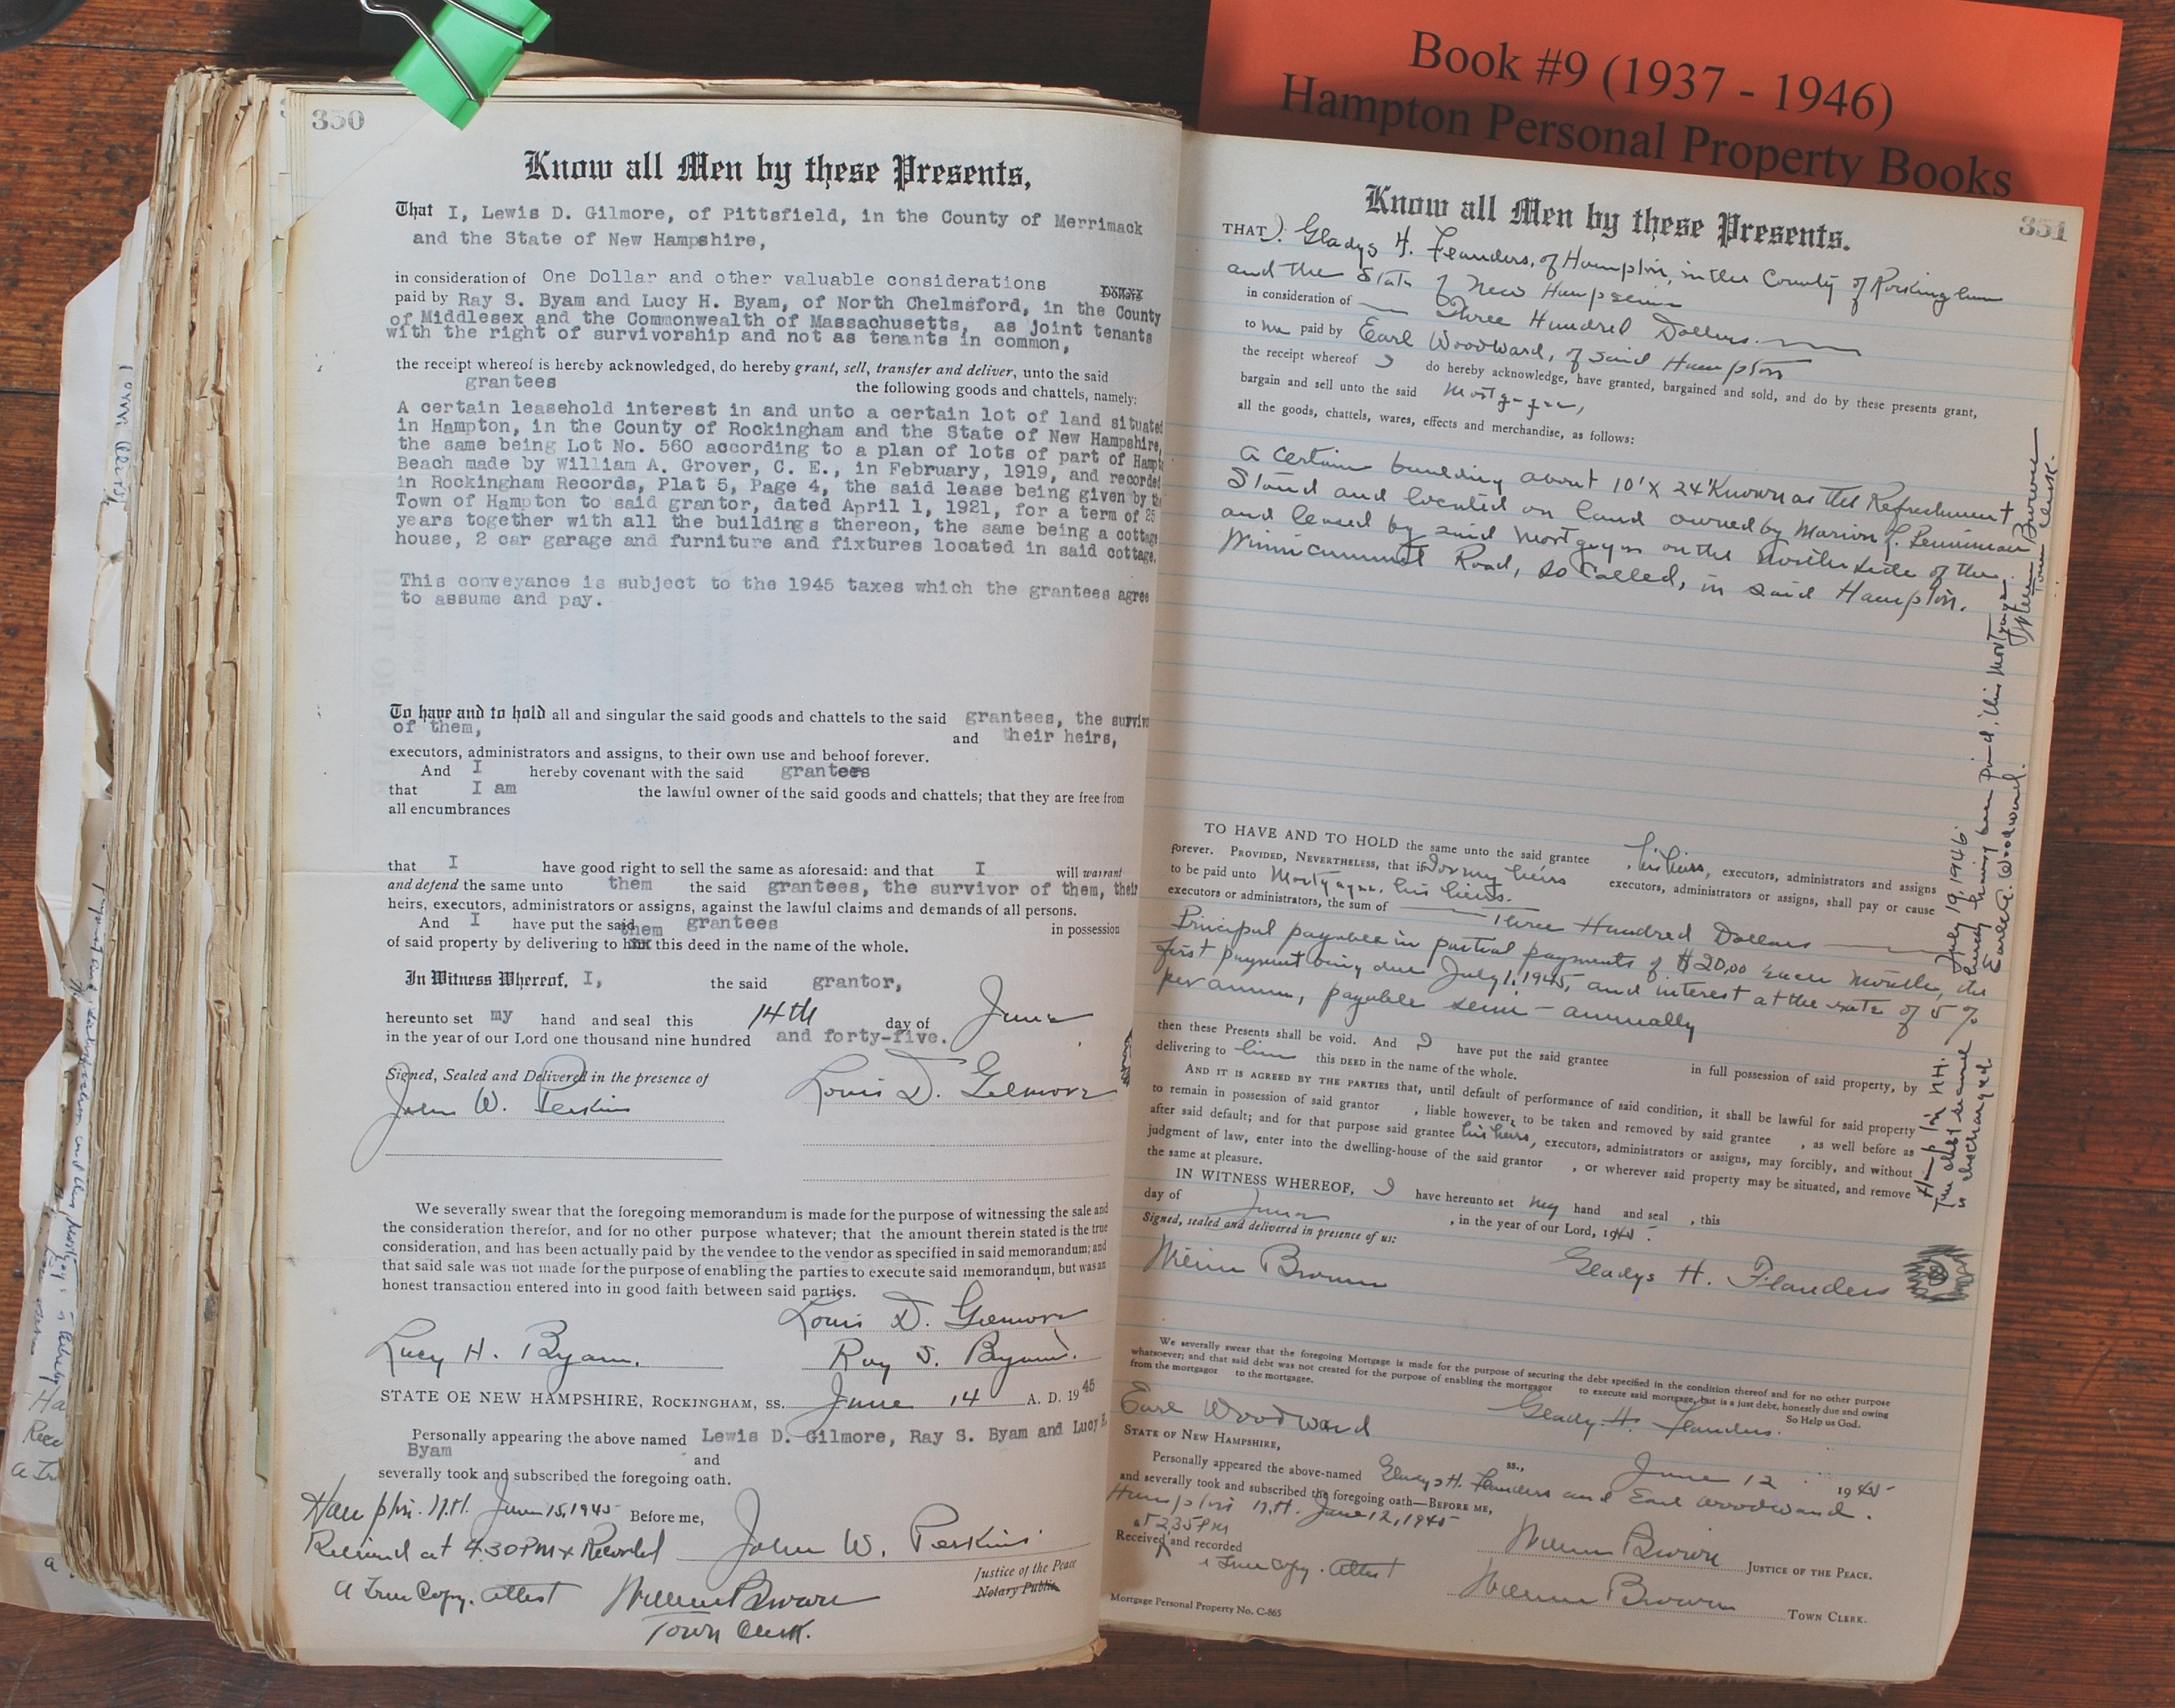 Book #9 (1937 - 1946)
Hampton Personal Property Books
350
Know all Men by these Presents,
That I, Lewis D. Gilmore, of Pittsfield, in the County of Merrimack
and the State of New Hampshire,
in consideration of One Dollar and other valuable considerations Dollars
paid by Ray S. Byam and Lucy H. Byam, of North Chelmsford, in the County
of Middlesex and the Commonwealth of Massachusetts, as joint tenants
with the right of survivorship and not as tenants in common,
the receipt whereof is hereby acknowledged, do hereby grant, sell, transfer and deliver, unto the said
grantees the following goods and chattels, namely:
A certain leasehold interest in and unto a certain lot of land situated
in Hampton, in the County of Rockingham and the State of New Hampshire,
the same being Lot No. 560 according to a plan of lots of part of Hampt
Beach made by William A. Grover, C. E., in February, 1919, and recorded
in Rockingham Records, Plat 5, Page 4, the said lease being given by the
Town of Hampton to said grantor, dated April 1, 1921, for a term of 25
years together with all the buildings thereon, the same being a cottage
house, 2 car garage and furniture and fixtures located in said cottage.
This conveyance is subject to the 1945 taxes which the grantees agree
to assume and pay.
To have and to hold all and singular the said goods and chattels to the said grantees, the surviv
of them, and their heirs,
executors, administrators and assigns, to their own use and behoof forever.
And I hereby covenant with the said grantees
that I am the lawful owner of the said goods and chattels; that they are free from
all encumbrances
that I have good right to sell the same as aforesaid: and that I will warrant
and defend the same unto them the said grantees, the survivor of them, their
heirs, executors, administrators or assigns, against the lawful claims and demands of all persons.
And I have put the said grantees in possession
of said property by delivering to them this deed in the name of the whole.
In Witness Whereof, I, the said grantor,
hereunto set my hand and seal this 14th day of June
in the year of our Lord one thousand nine hundred and forty-five.
Signed, Sealed and Delivered in the presence of
John W. Perkins Louis D. Gilmore
We severally swear that the foregoing memorandum is made for the purpose of witnessing the sale and
the consideration therefor, and for no other purpose whatever; that the amount therein stated is the true
consideration, and has been actually paid by the vendee to the vendor as specified in said memorandum; and
that said sale was not made for the purpose of enabling the parties to execute said memorandum, but was an
honest transaction entered into in good faith between said parties.
Louis D. Gilmore
Lucy H. Byam. Ray S. Byam.
STATE OE NEW HAMPSHIRE, ROCKINGHAM, SS. June 14 A. D. 1945
Personally appearing the above named Lewis D. Gilmore, Ray S. Byam and Lucy H.
Byam and
severally took and subscribed the foregoing oath.
Hampton. N.H. June 15, 1945 Before me,
Received at 4.30 PM & Recorded John W. Perkins
Justice of the Peace
Notary Public
A True Copy. Attest William Brown
Town Clerk.
351
Know all Men by these Presents.
THAT I. Gladys H. Flanders, of Hampton, in the County of Rockingham
and the State of New Hampshire
in consideration of Three Hundred Dollars.
to me paid by Earl Woodward, of said Hampton
the receipt whereof I do hereby acknowledge, have granted, bargained and sold, and do by these presents grant,
bargain and sell unto the said Mortgagee,
all the goods, chattels, wares, effects and merchandise, as follows:
A certain building about 10' X 24' Known as the Refreshment
Stand and located on land owned by Marion J.
and leased by said Mortgagor on the Northerly side of the
Winnicunnet Road, so called, in said Hampton.
TO HAVE AND TO HOLD the same unto the said grantee , his heirs, executors, administrators and assigns
forever. PROVIDED, NEVERTHELESS, that if I or my heirs executors, administrators or assigns, shall pay or cause
to be paid unto Mortgagee, his heirs.
executors or administrators, the sum of Three Hundred Dollars
Principal payable in partial payments of $20.00 each month, the
first payment being due July 1, 1945, and interest at the rate of 5 %
per annum, payable semi-annually
then these Presents shall be void. And I have put the said grantee in full possession of said property, by
delivering to him this DEED in the name of the whole.
AND IT IS AGREED BY THE PARTIES that, until default of performance of said condition, it shall be lawful for said property
to remain in possession of said grantor , liable however, to be taken and removed by said grantee , as well before as
after said default; and for that purpose said grantee his heirs, executors, administrators or assigns, may forcibly, and without
judgment of law, enter into the dwelling-house of the said grantor , or wherever said property may be situated, and remove
the same at pleasure.
IN WITNESS WHEREOF, I have hereunto set my hand and seal , this
day of June , in the year of our Lord, 1945.
Signed, sealed and delivered in presence of us:
William Brown Gladys H. Flanders
We severally swear that the foregoing Mortgage is made for the purpose of securing the debt specified in the condition thereof and for no other purpose
whatsoever; and that said debt was not created for the purpose of enabling the mortgagor to execute said mortgage, but is a just debt, honestly due and owing
from the mortgagor to the mortgagee. So Help us God.
Earl Woodward Gladys H. Flanders.
STATE OF NEW HAMPSHIRE, ss., June 12 1945
Personally appeared the above-named Gladys H. Flanders and Earl Woodward.
and severally took and subscribed the foregoing oath—BEFORE ME,
Hampton N.H. June 12, 1945
at 2.35 PM
Received and recorded William Brown JUSTICE OF THE PEACE.
A True Copy. Attest William Brown TOWN CLERK.
Mortgage Personal Property No. C-865
Hampton N.H. July 19, 1946.
The debt secured hereby having been paid, this mortgage
is discharged. Earl A. Woodward.
William Brown
Town Clerk.